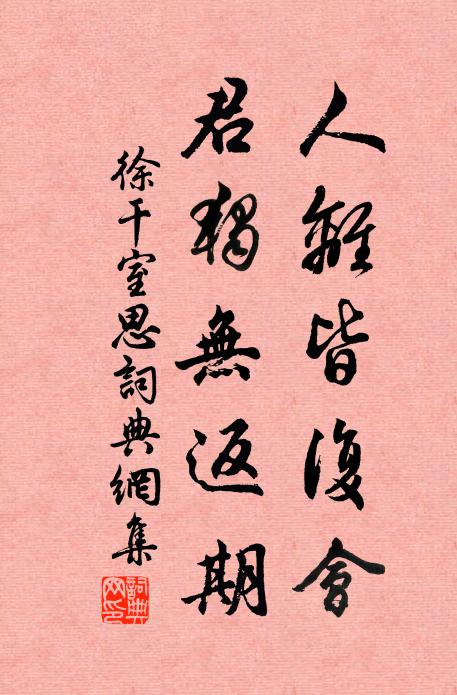 人離皆復會
君獨無返期
徐干室思詞典網集
詞典網印